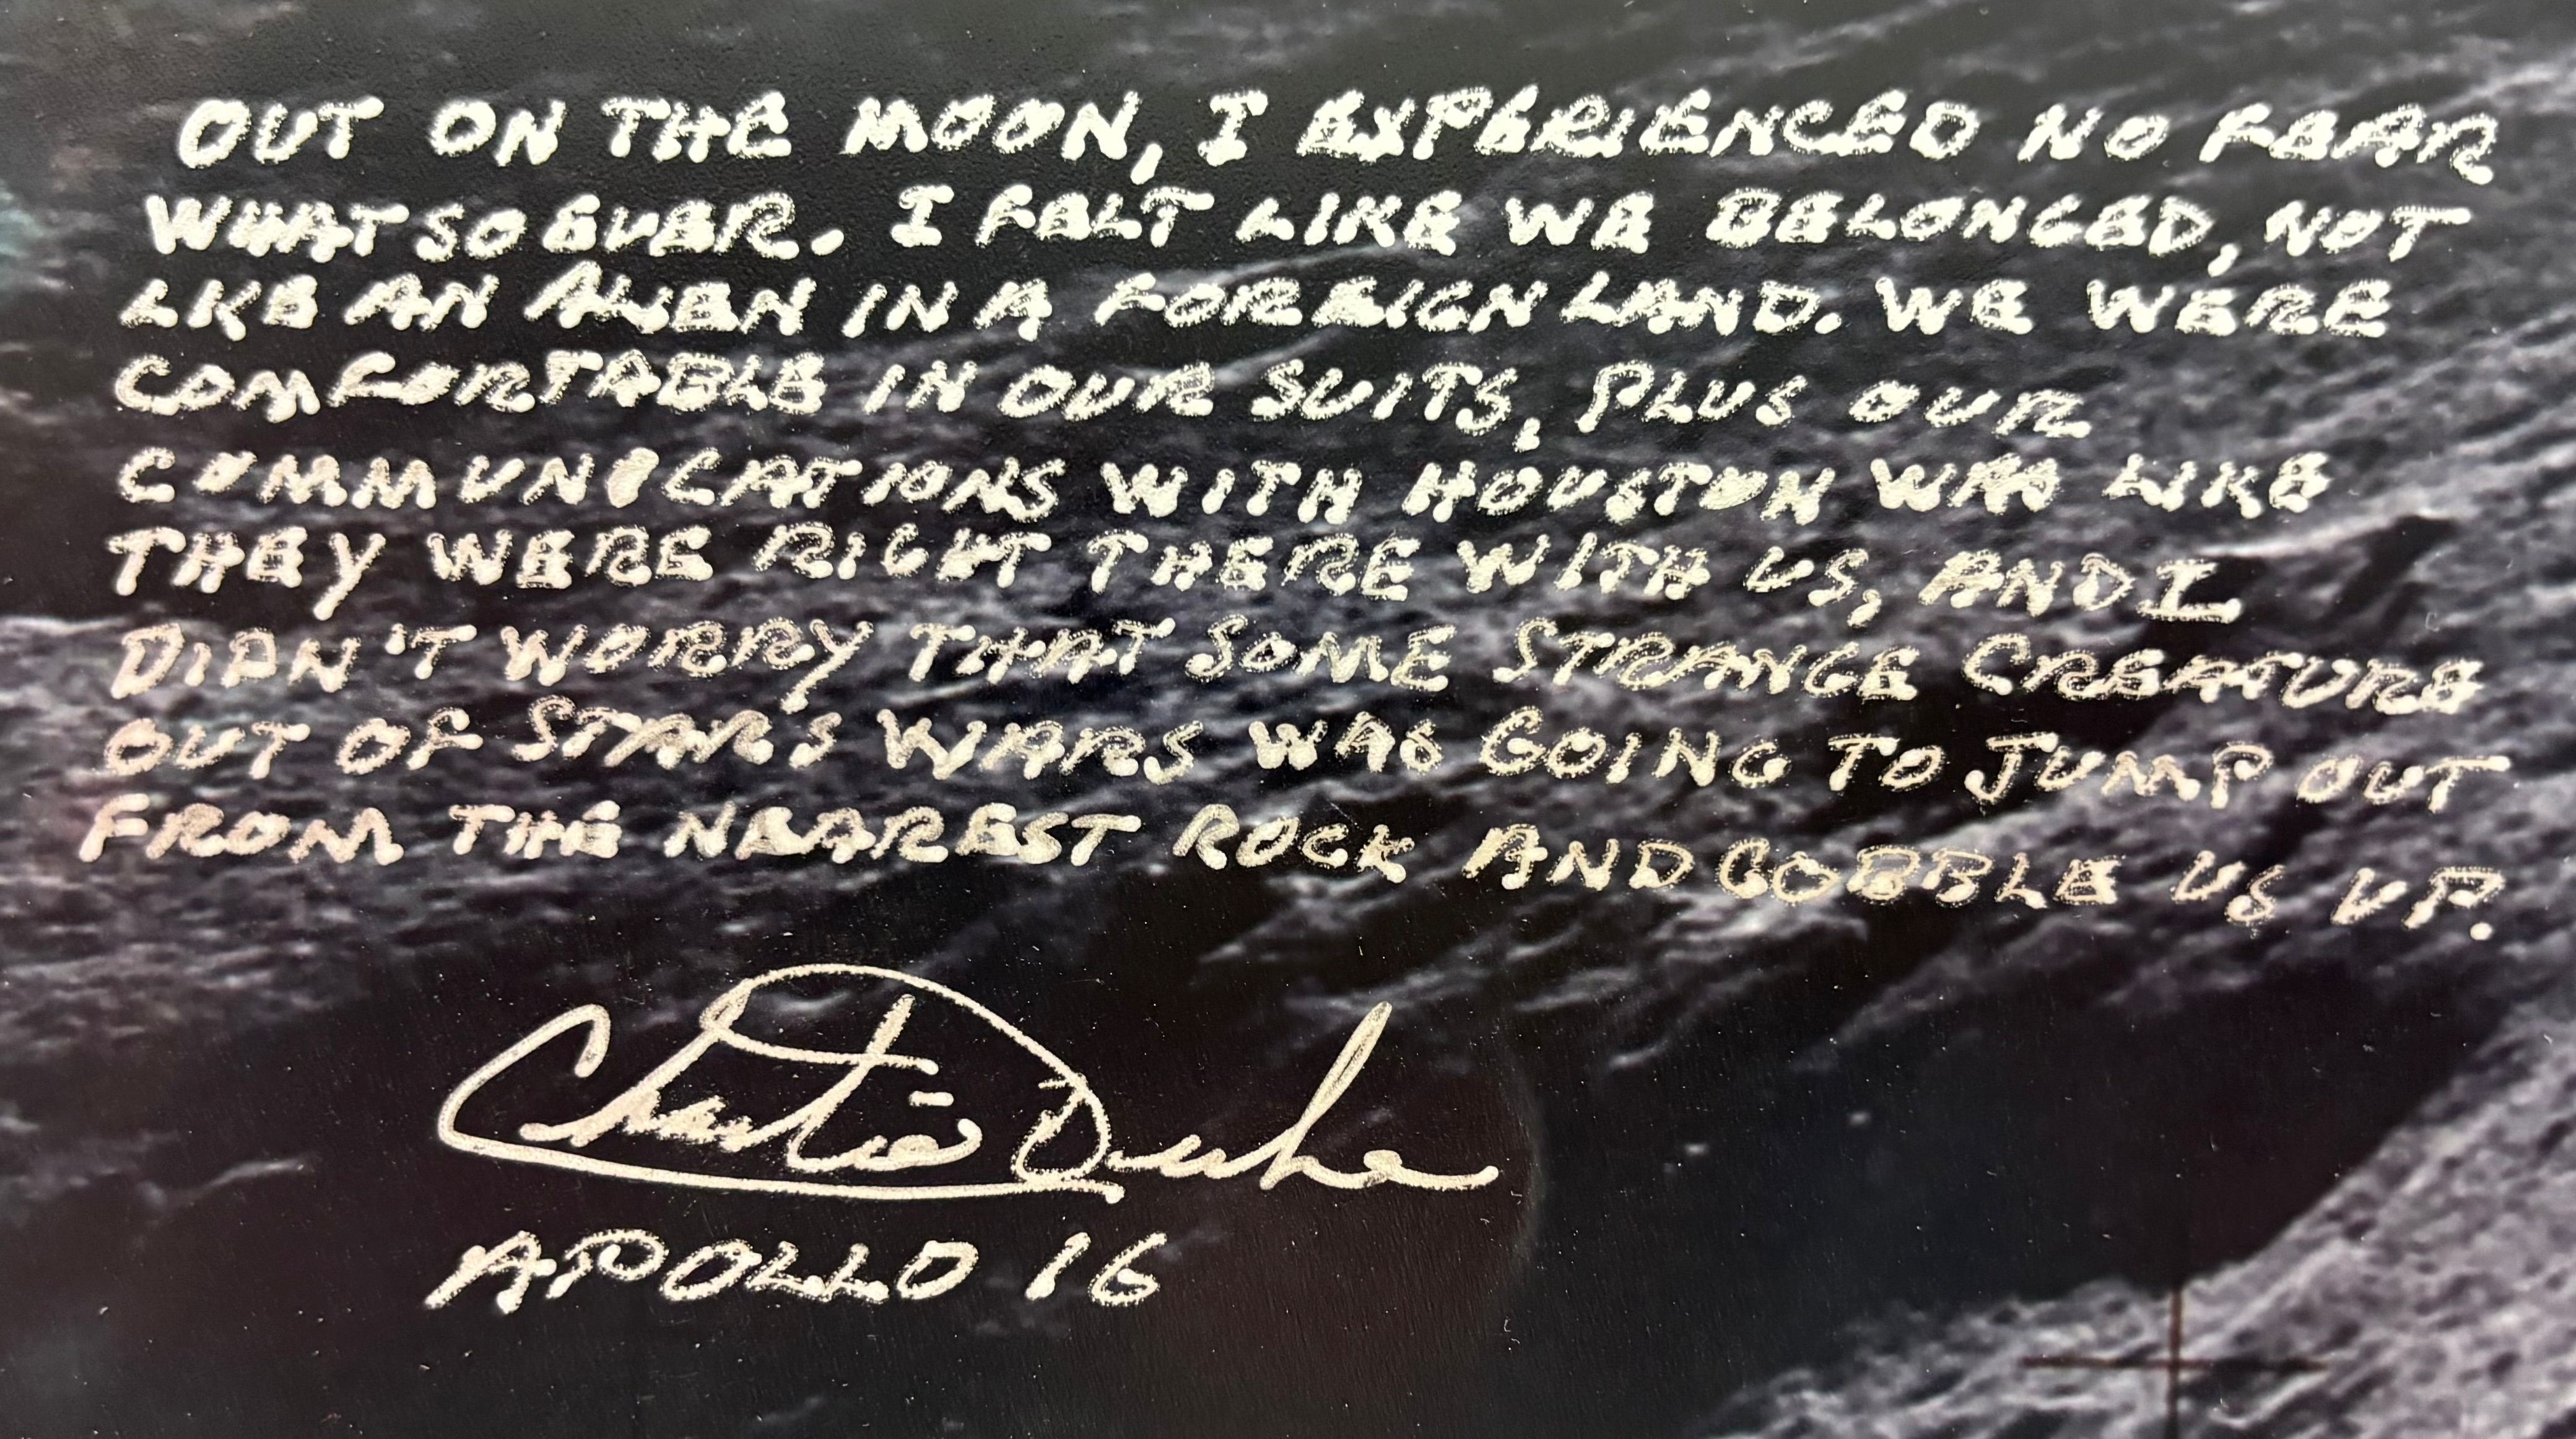 OUT ON THE MOON, I EXPERIENCED NO FEAR
WHATSOEVER. I FELT LIKE WE BELONGED, NOT
LIKE AN ALIEN IN A FOREIGN LAND. WE WERE
COMFORTABLE IN OUR SUITS, PLUS OUR
COMMUNICATIONS WITH HOUSTON WAS LIKE
THEY WERE RIGHT THERE WITH US, AND I
DIDN'T WORRY THAT SOME STRANGE CREATURE
OUT OF STARS WARS WAS GOING TO JUMP OUT
FROM THE NEAREST ROCK AND GOBBLE US UP.
Charlie Duke
APOLLO 16